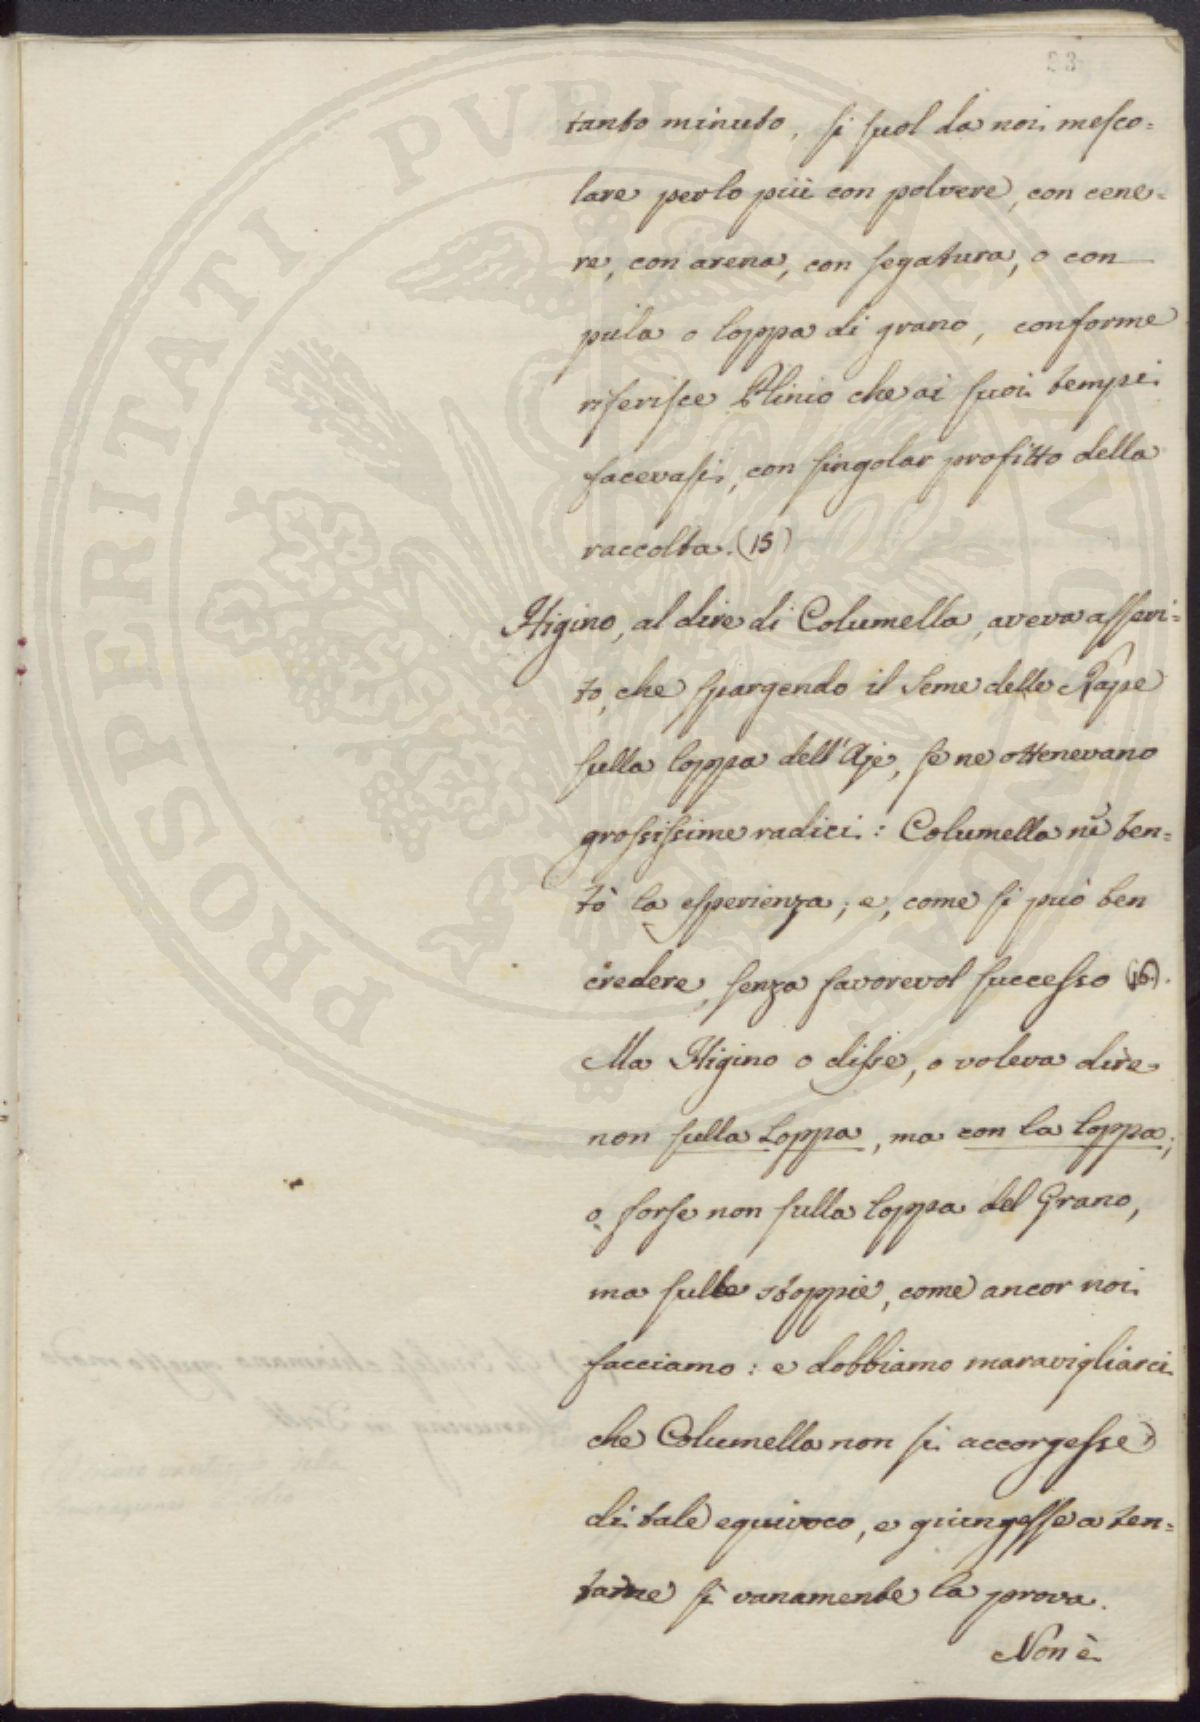 23
tanto minuto, si suol da noi mesco=
lare perlo più con polvere, con cene=
re, con arena, con segatura, o con
pula o loppa di grano, conforme
riferisce Plinio che ai suoi tempi
facevasi, con singolar profitto della
raccolta. (15)
Higino, al dire di Columella, aveva asseri=
to, che spargendo il seme delle Rape
sulla loppa dell'Aje, se ne ottenevano
grossissime radici: Columella nè ten=
tò la esperienza; e, come si può ben
credere, senza favorevol successo (16).
Ma Higino o disse, o voleva dire
non sulla Loppa, ma con la loppa;
o forse non sulla loppa del Grano,
ma sulle stoppie, come ancor noi
facciamo: e dobbiamo maravigliarci
che Columella non si accorgesse
di tale equivoco, e giungesse a ten=
tarne sì vanamente la prova.
Non è
PROSPERITATI PVBLICAE AVGENDAE